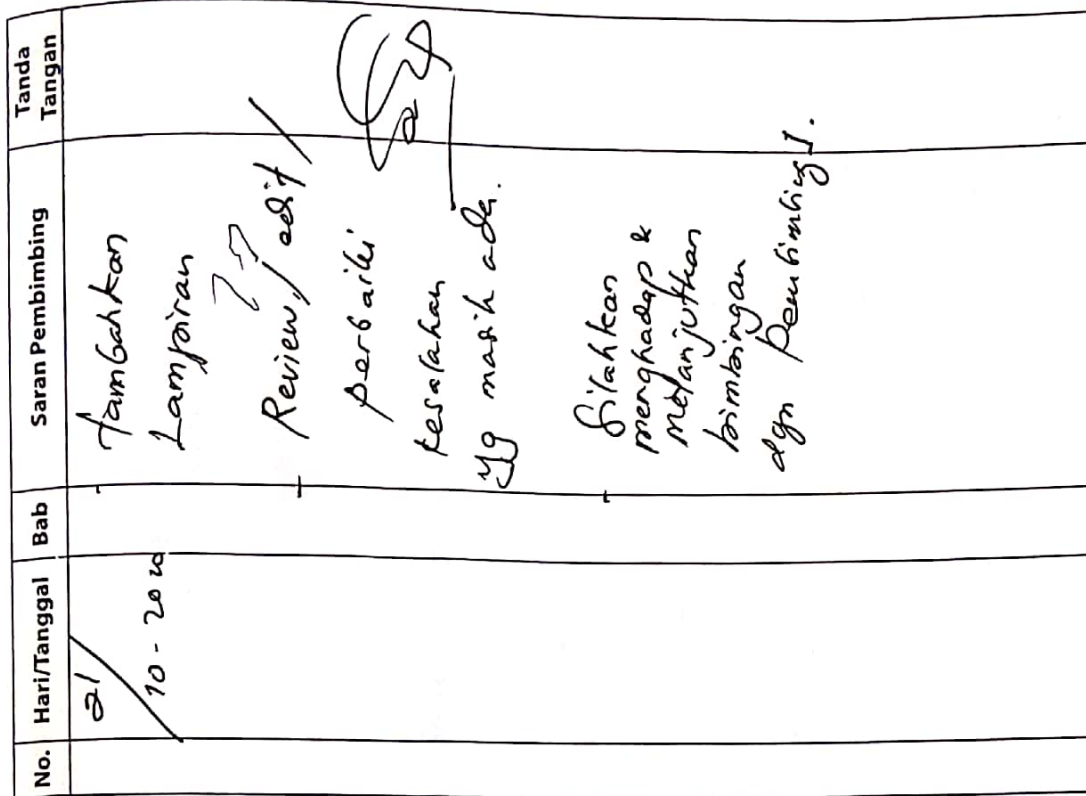 No. Hari/Tanggal Bab Saran Pembimbing Tanda Tangan
21/10-2020
- Tambahkan
Lampiran
- Review/edit/
perbaiki
kesalahan
yg masih ada.
- Silahkan
menghadap &
melanjutkan
bimbingan
dgn Pembimbing I.